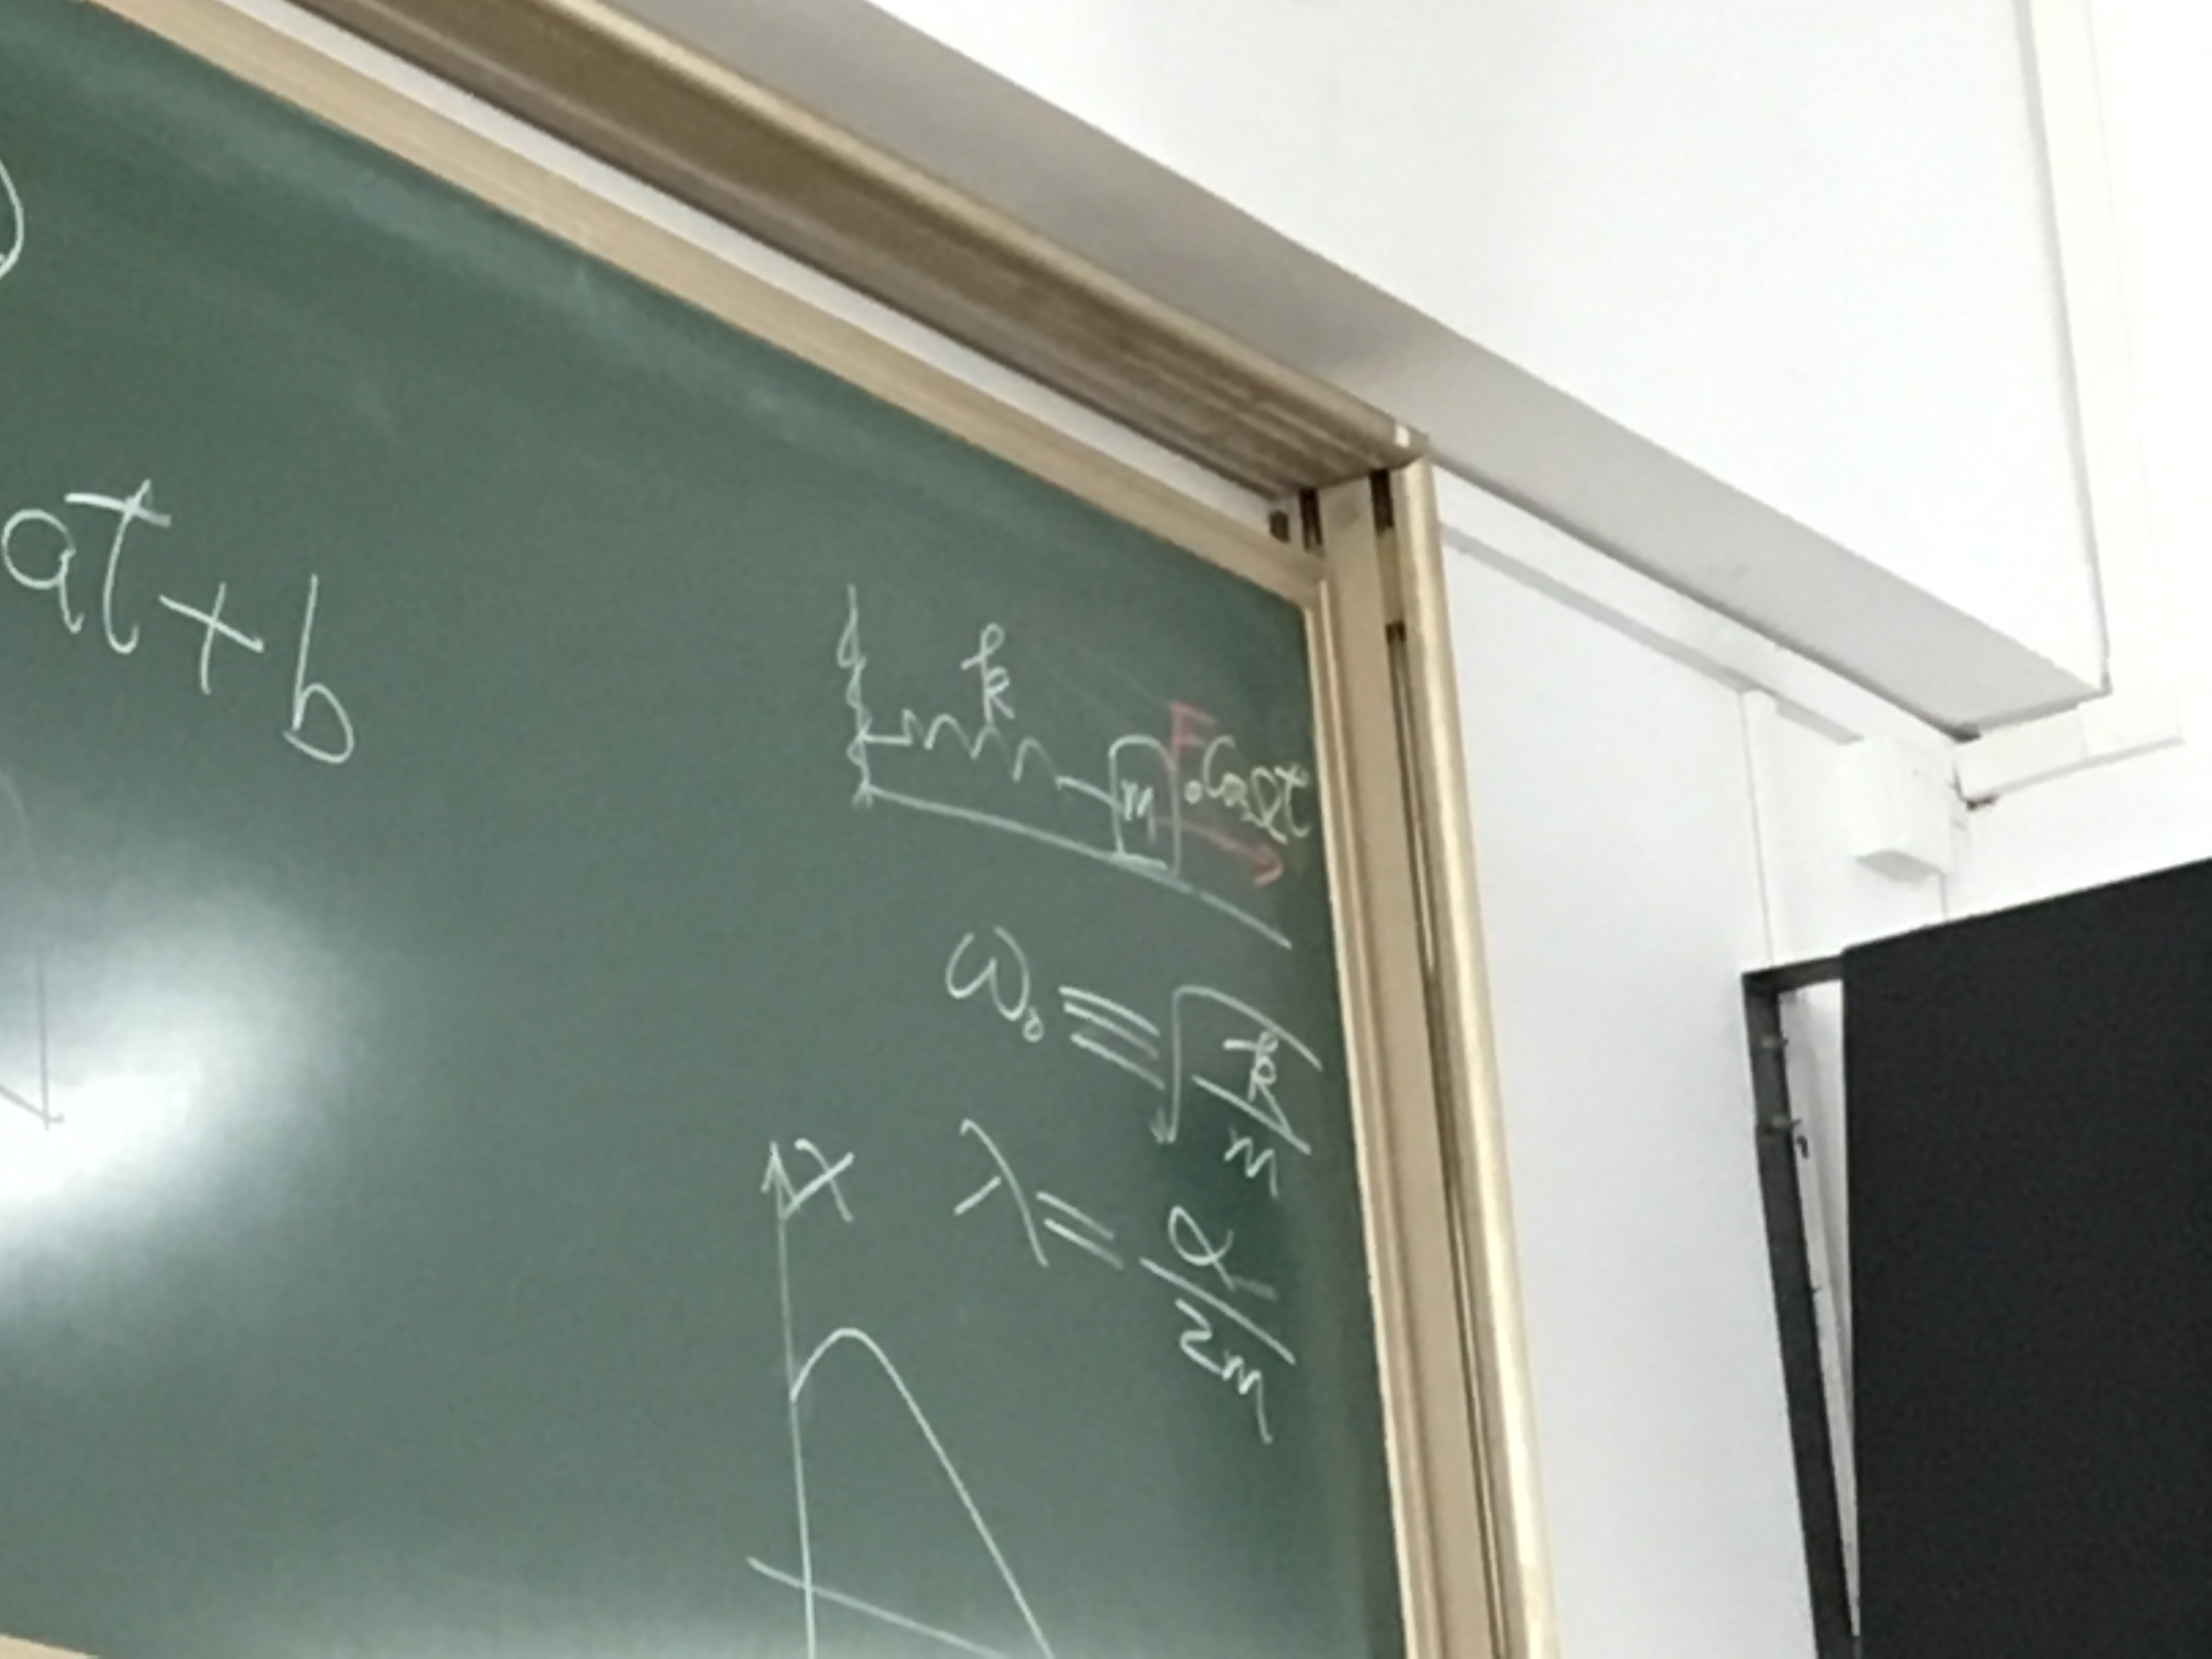 at+b
k
m F₀cosΩt
ω₀≡√(k/m)
x
λ=α/2m